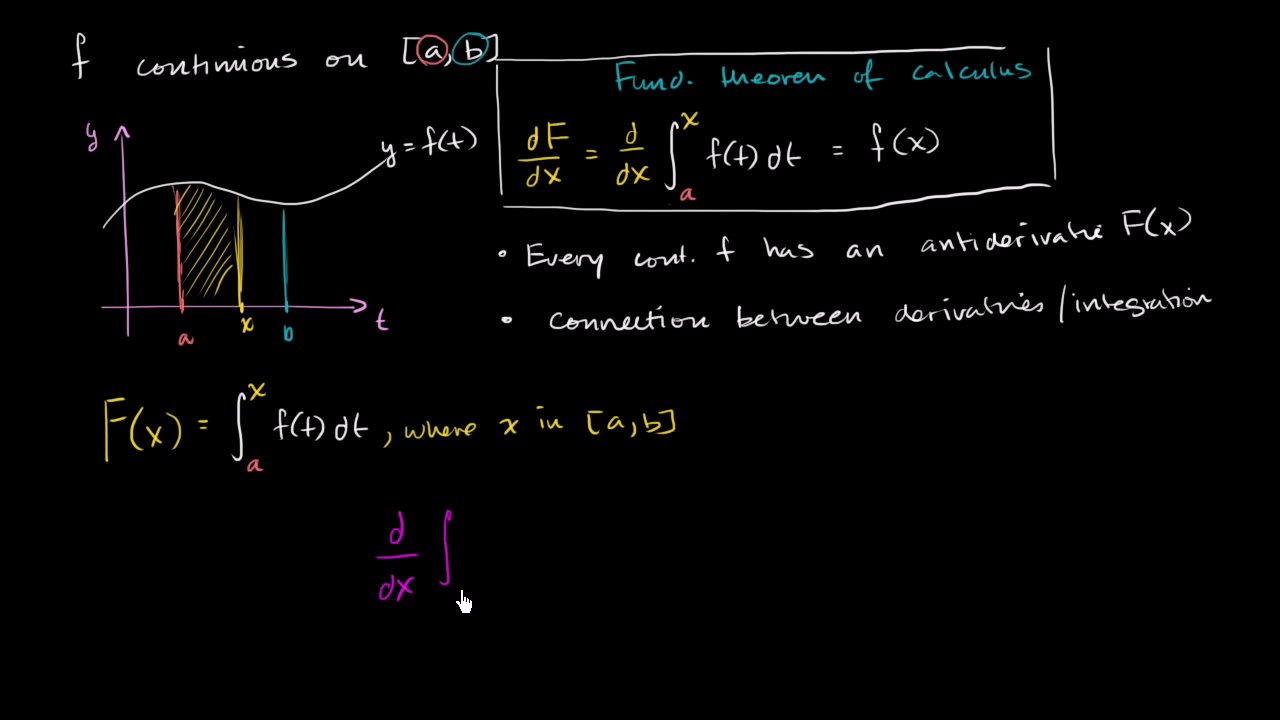 f continuous on [a, b]
Fund. theorem of calculus
dF/dx = d/dx ∫_a^x f(t) dt = f(x)
y
y = f(t)
a
x
b
t
• Every cont. f has an antiderivative F(x)
• Connection between derivatives/integration
F(x) = ∫_a^x f(t) dt, where x in [a, b]
d/dx ∫